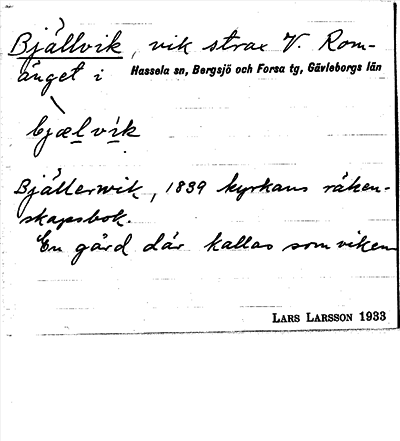 Bjällvik, vik strax V. Rom-
änget i Hassela sn, Bergsjö och Forsa tg, Gävleborgs län
bjælvik
Bjällerwik, 1839 kyrkans räken-
skapsbok.
En gård där kallas som viken
LARS LARSSON 1933